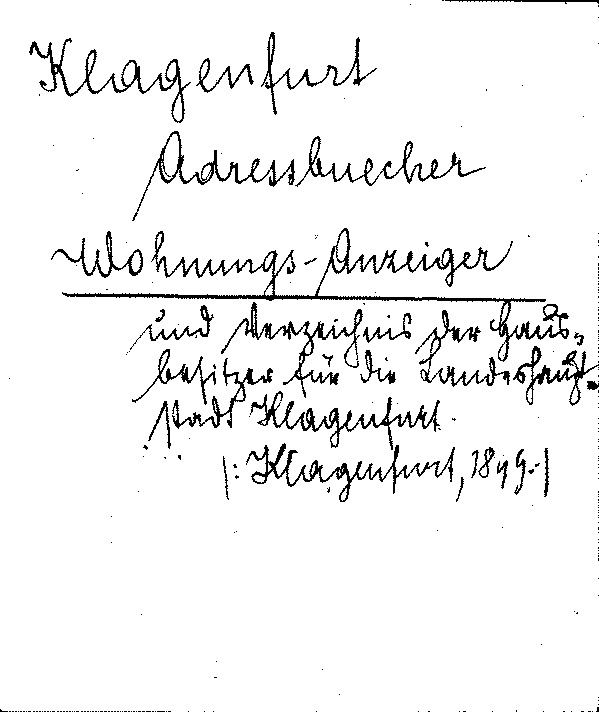 Klagenfurt
Adressbuecher
Wohnungs-Anzeiger
und Verzeichnis der Haus-
besitzer für die Landeshaupt-
stadt Klagenfurt.
|: Klagenfurt, 1899.-|